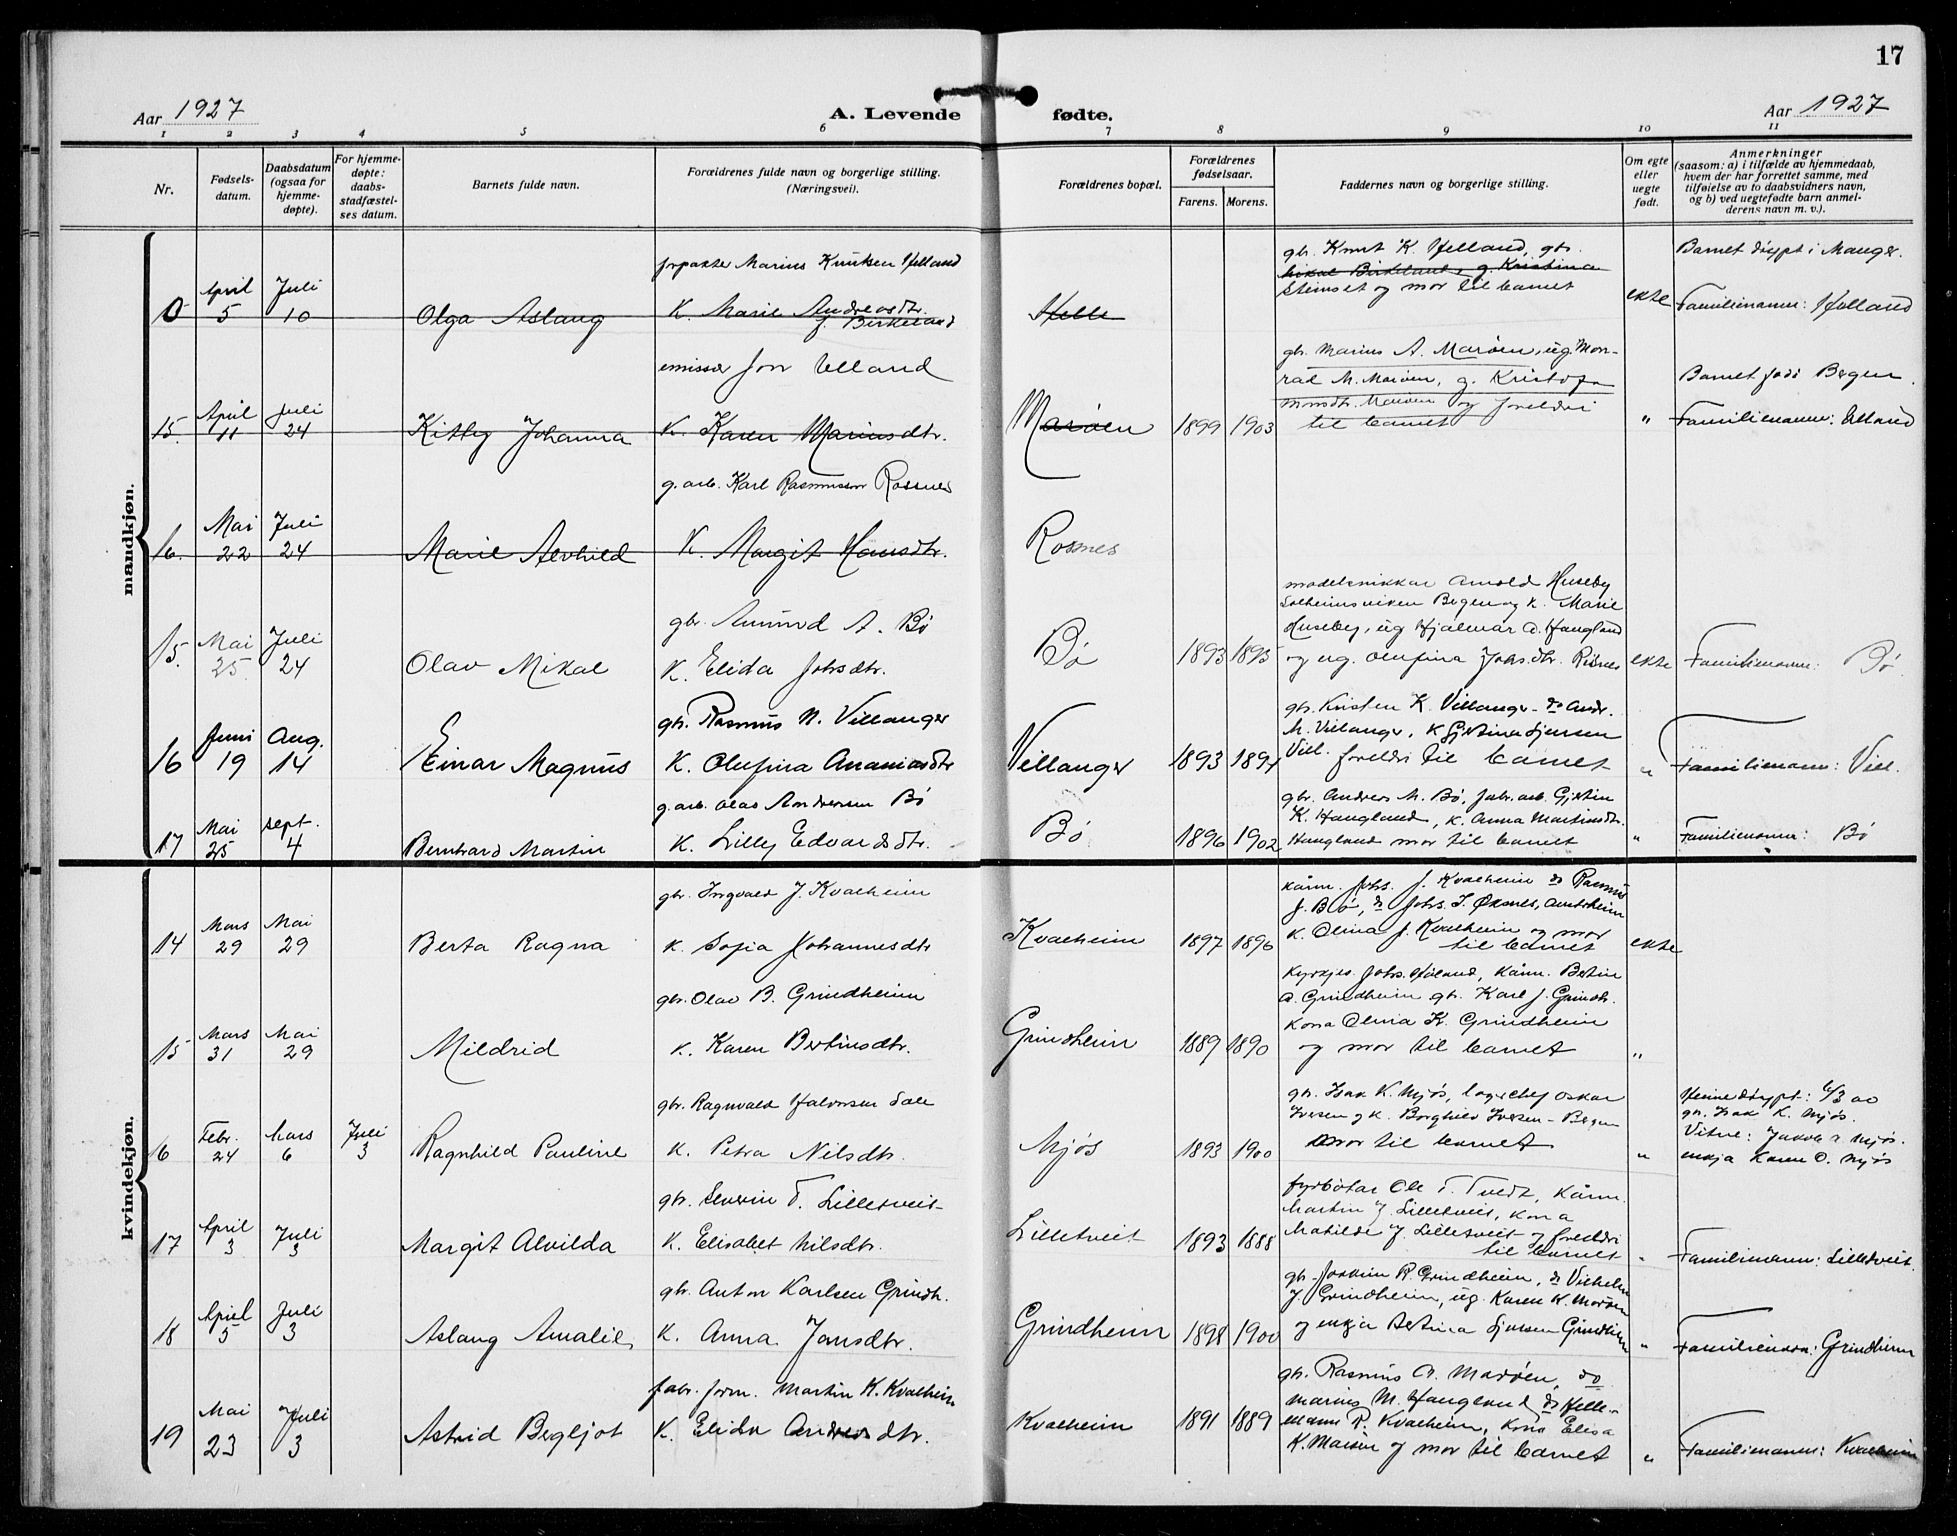 17
Aar 1927
A. Levende fødte.
Aar 1927
1 2 3 4 5 6 7 8 9 10 11
Nr.
Fødsels-
datum.
Daabsdatum
(ogsaa for
hjemme-
døpte).
For hjemme-
døpte:
daabs-
stadfæstel-
ses datum.
Barnets fulde navn.
Forældrenes fulde navn og borgerlige stilling.
(Næringsvei).
Forældrenes bopæl.
Forældrenes
fødselsaar.
Farens. Morens.
Faddernes navn og borgerlige stilling.
Om egte
eller
uegte
født.
Anmerkninger
(saasom: a) i tilfælde av hjemmedaab,
hvem der har forrettet samme, med
tilføielse av to daabsvidners navn,
og b) ved uegtefødte barn anmel-
derens navn m. v.).
mandkjøn.
April 5
Juli 10
Olga Aslaug
forpakter Marius Knutsen Helland
K. Marie Andreasdtr.
f. Birkeland
Helle
gbr. Knut K. Helland, gbr.
Mikal Birkeland, g. Kristina
Steinset og mor til barnet
ekte
Barnet døypt i Manger.
Familienamn: Helland
15.
April 11
Juli 24
Kitty Johanna
emissær Jon Ulland
K. Karen Mariusdtr.
Marøen
1899 1903
gbr. Marius A. Marøen, ug. Mon-
rad M. Marøen, g. Kristofa
Monsdtr. Marøen og foreldri
til barnet
"
Barnet født Bergen.
Familienamn: Ulland
16.
Mai 22
Juli 24
Marie Alvhild
g. arb. Karl Rasmussen Rossnes
K. Margit Hansdtr.
Rosnes
15.
Mai 25
Juli 24
Olav Mikal
gbr. Amund A. Bø
K. Elida Johsdtr.
Bø
1893 1895
modelsnikkar Arnold Huseby
Solheimsviken Bergen og K. Marie
Huseby, ug Hjalmar A. Haugland
og ug. Olufina Johs.dtr. Risnes
ekte
Familienamn: Bø
16
Juni 19
Aug. 14
Einar Magnus
gbr. Rasmus N. Villanger
K. Olufina Ananiasdtr
Villanger
1893 1894
gbr. Kristen K. Villanger - do Andr.
M. Villanger, K Gjertine Sjursen
Vill. foreldri til barnet
"
Familienamn: Vill.
17
Mai 25
Sept. 4
Bernhard Martin
g. arb. Olas Andersen Bø
K. Lilly Edvardsdtr.
Bø
1896 1902
gbr. Andreas M. Bø, fabr. arb. Gjertin
K. Haugland, K. Anna Martinsdtr.
Haugland mor til barnet
"
Familienamn: Bø
kvindekjøn.
14
Mars 29
Mai 29
Berta Ragna
gbr. Ingvald J. Kvalheim
K. Sofia Johannesdtr
Kvalheim
1897 1896
kårm. Johs. J. Kvalheim do Rasmus
J. Bø, do Johs. I. Øksnes, Austrheim
K. Olina J. Kvalheim og mor
til barnet
ekte
15
Mars 31
Mai 29
Mildrid
gbr. Olav B. Grindheim
K. Karen Bertinsdtr.
Grindheim
1889 1890
Kyrkjes. Johs. Høland, kårm. Bertin
A. Grindheim gbr. Karl J. Grindh.
kona Olina K. Grindheim
og mor til barnet
"
16
Febr. 24
Mars 6
Juli 3
Ragnhild Pauline
gbr. Ragnvald Halvorsen Sæle
K. Petra Nilsdtr.
Mjøs
1893 1900
gbr. Isak K. Mjøs, lagerchef Oskar
Iversen og K. Borghild Iversen - Bergen
mor til barnet
"
Heimedøypt: 6/3 av
gbr. Isak K. Mjøs.
Vitne: Jakob Mjøs.
enkja Karen O. Mjøs
17
April 3
Juli 3
Margit Alvilda
gbr. Severin T. Lilletveit
K. Elisabet Nilsdtr.
Lilletveit
1893 1888
fyrbøtar Ole T. Tvedt, Kårm.
Martin J. Lilletveit, kona
Matilde J. Lilletveit og foreldri
til barnet
"
Familienamn: Lilletveit.
18
April 5
Juli 3
Aslaug Amalie
gbr. Anton Karlsen Grindh.
K. Anna Jansdtr.
Grindheim
1898 1900
gbr. Joakim R. Grindheim, do Vilhelm
J. Grindheim, ug. Karen W. Marøen
og enkja Bertina Sjursen Grindheim
"
Familienamn: Grindheim
19
Mai 23
Juli 3
Astrid Bergljot
fabr. form. Martin K. Kvalheim
K. Elida Andersdtr.
Kvalheim
1891 1889
gbr. Rasmus A. Marøen, do
Marius M. Haugland, do Helle-
mann R. Kvalheim, kona Elisa
K. Marøen og mor til barnet
"
Familienamn: Kvalheim